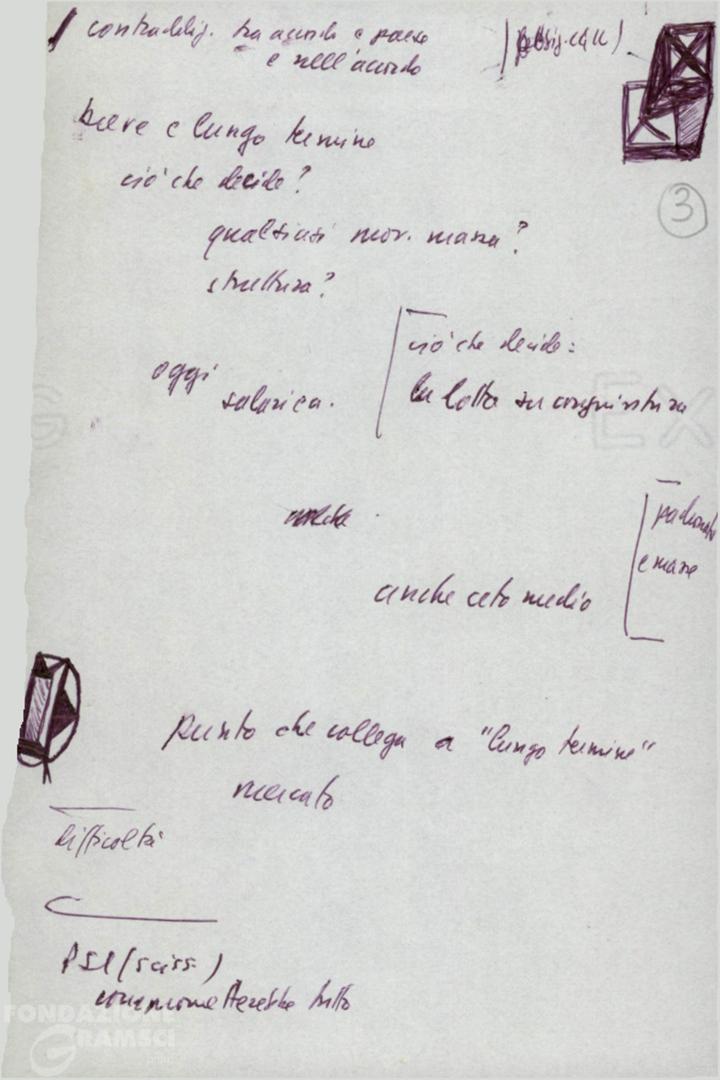 contraddiz. tra accordo e paese
e nell'accordo
breve e lungo termine
ciò che decide?
qualsiasi mov. massa?
struttura?
3
oggi
salarica.
ciò che decide:
la lotta su congiuntura
anche ceto medio
e masse
punto che collega a "lungo termine"
mercato
difficoltà
PSI (sciss.)
comprometterebbe tutto
FONDAZIONE
GRAMSCI